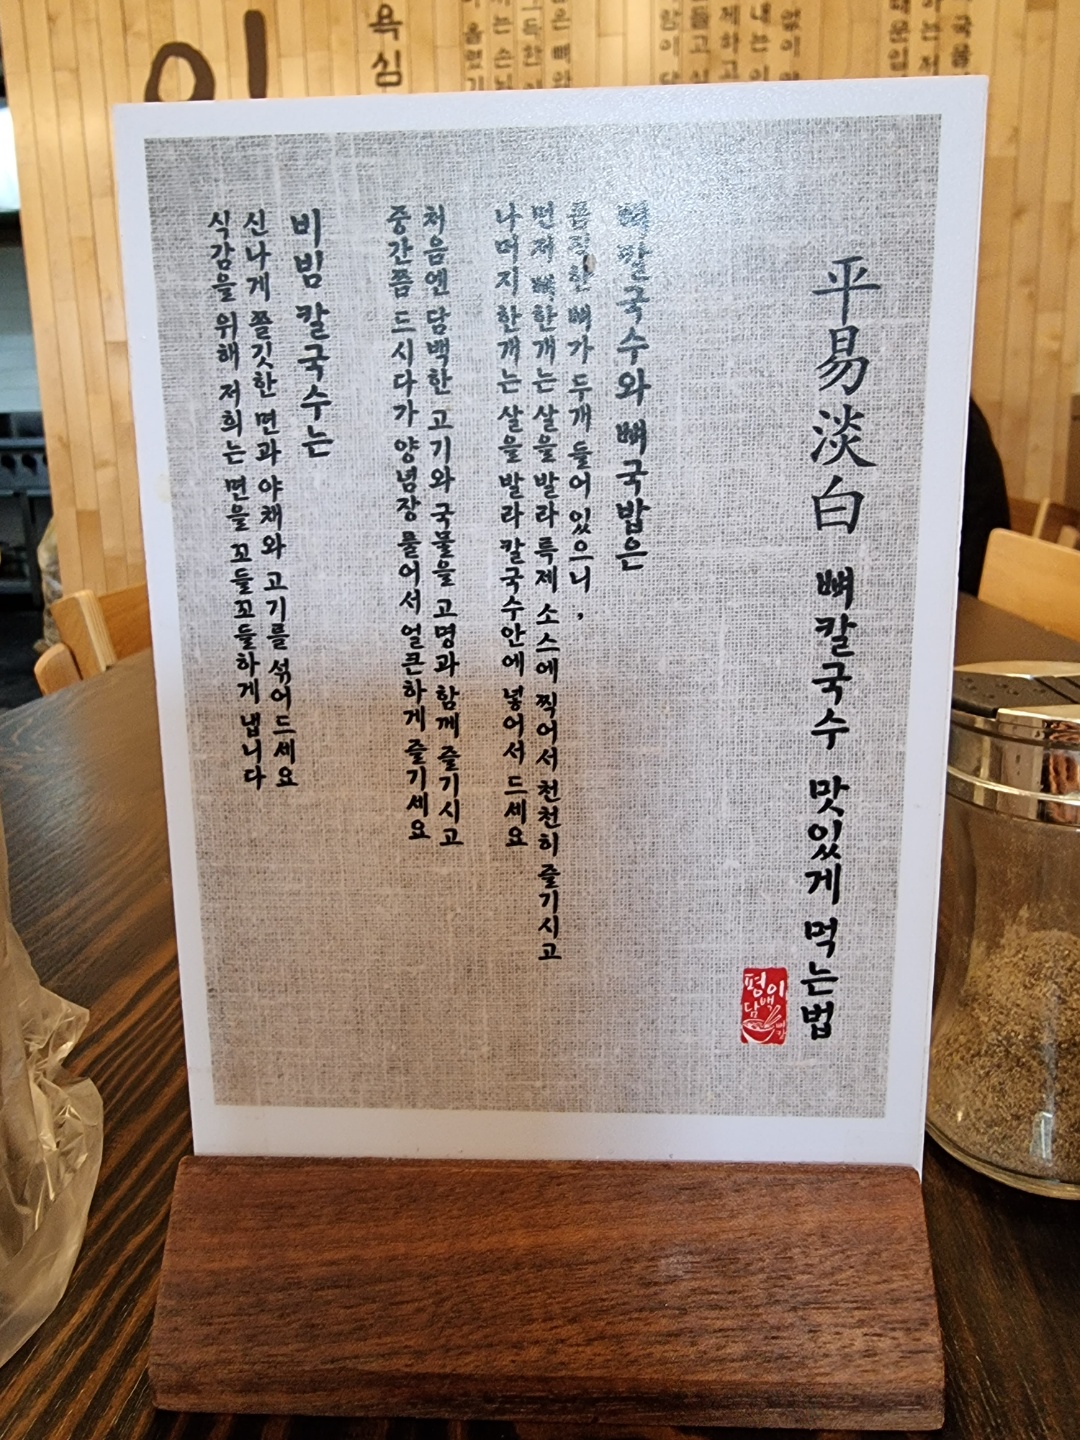 平易淡白 뼈칼국수 맛있게 먹는법
평이
담백
뼈칼
뼈칼국수와 뼈국밥은
큼직한 뼈가 두개 들어 있으니,
먼저 뼈 한개는 살을 발라 특제 소스에 찍어서 천천히 즐기시고
나머지 한개는 살을 발라 칼국수안에 넣어서 드세요
처음엔 담백한 고기와 국물을 고명과 함께 즐기시고
중간쯤 드시다가 양념장 풀어서 얼큰하게 즐기세요
비빔 칼국수는
신나게 쫄깃한 면과 야채와 고기를 섞어드세요
식감을 위해 저희는 면을 꼬들꼬들하게 냅니다
욕심